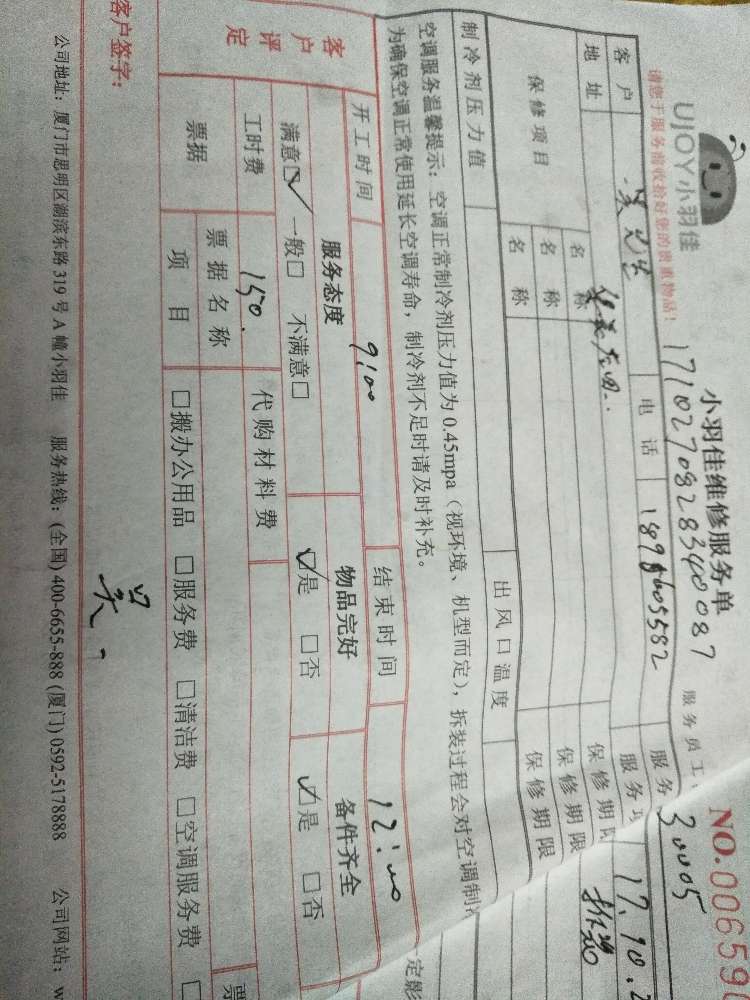 UJOY小羽佳
小羽佳维修服务单
NO.00659
请您于服务前收拾好您的贵重物品!
17102708283400087
服务员工
30005
客户 吴先生 电话 18965605582 服务
地址 服务 17.10.2
保修项目 名称 保修期限 拆装
名称 保修期限
名称 保修期限
制冷剂压力值 出风口温度
空调服务温馨提示:空调正常制冷剂压力值为0.45mpa(视环境、机型而定),拆装过程会对空调制冷
定影
为确保空调正常使用延长空调寿命,制冷剂不足时请及时补充。
开工时间 9:00 结束时间 12:00
客户评定 服务态度 物品完好 备件齐全
满意☑ 一般□ 不满意□ ☑是 □否 ☑是 □否
工时费 150. 代购材料费
票据 票据名称 票
项目 □搬办公用品 □服务费 □清洁费 □空调服务费 □
客户签字: 吴
公司地址:厦门市思明区湖滨东路319号A幢小羽佳 服务热线:(全国)400-6655-888 (厦门)0592-5178888 公司网站:w